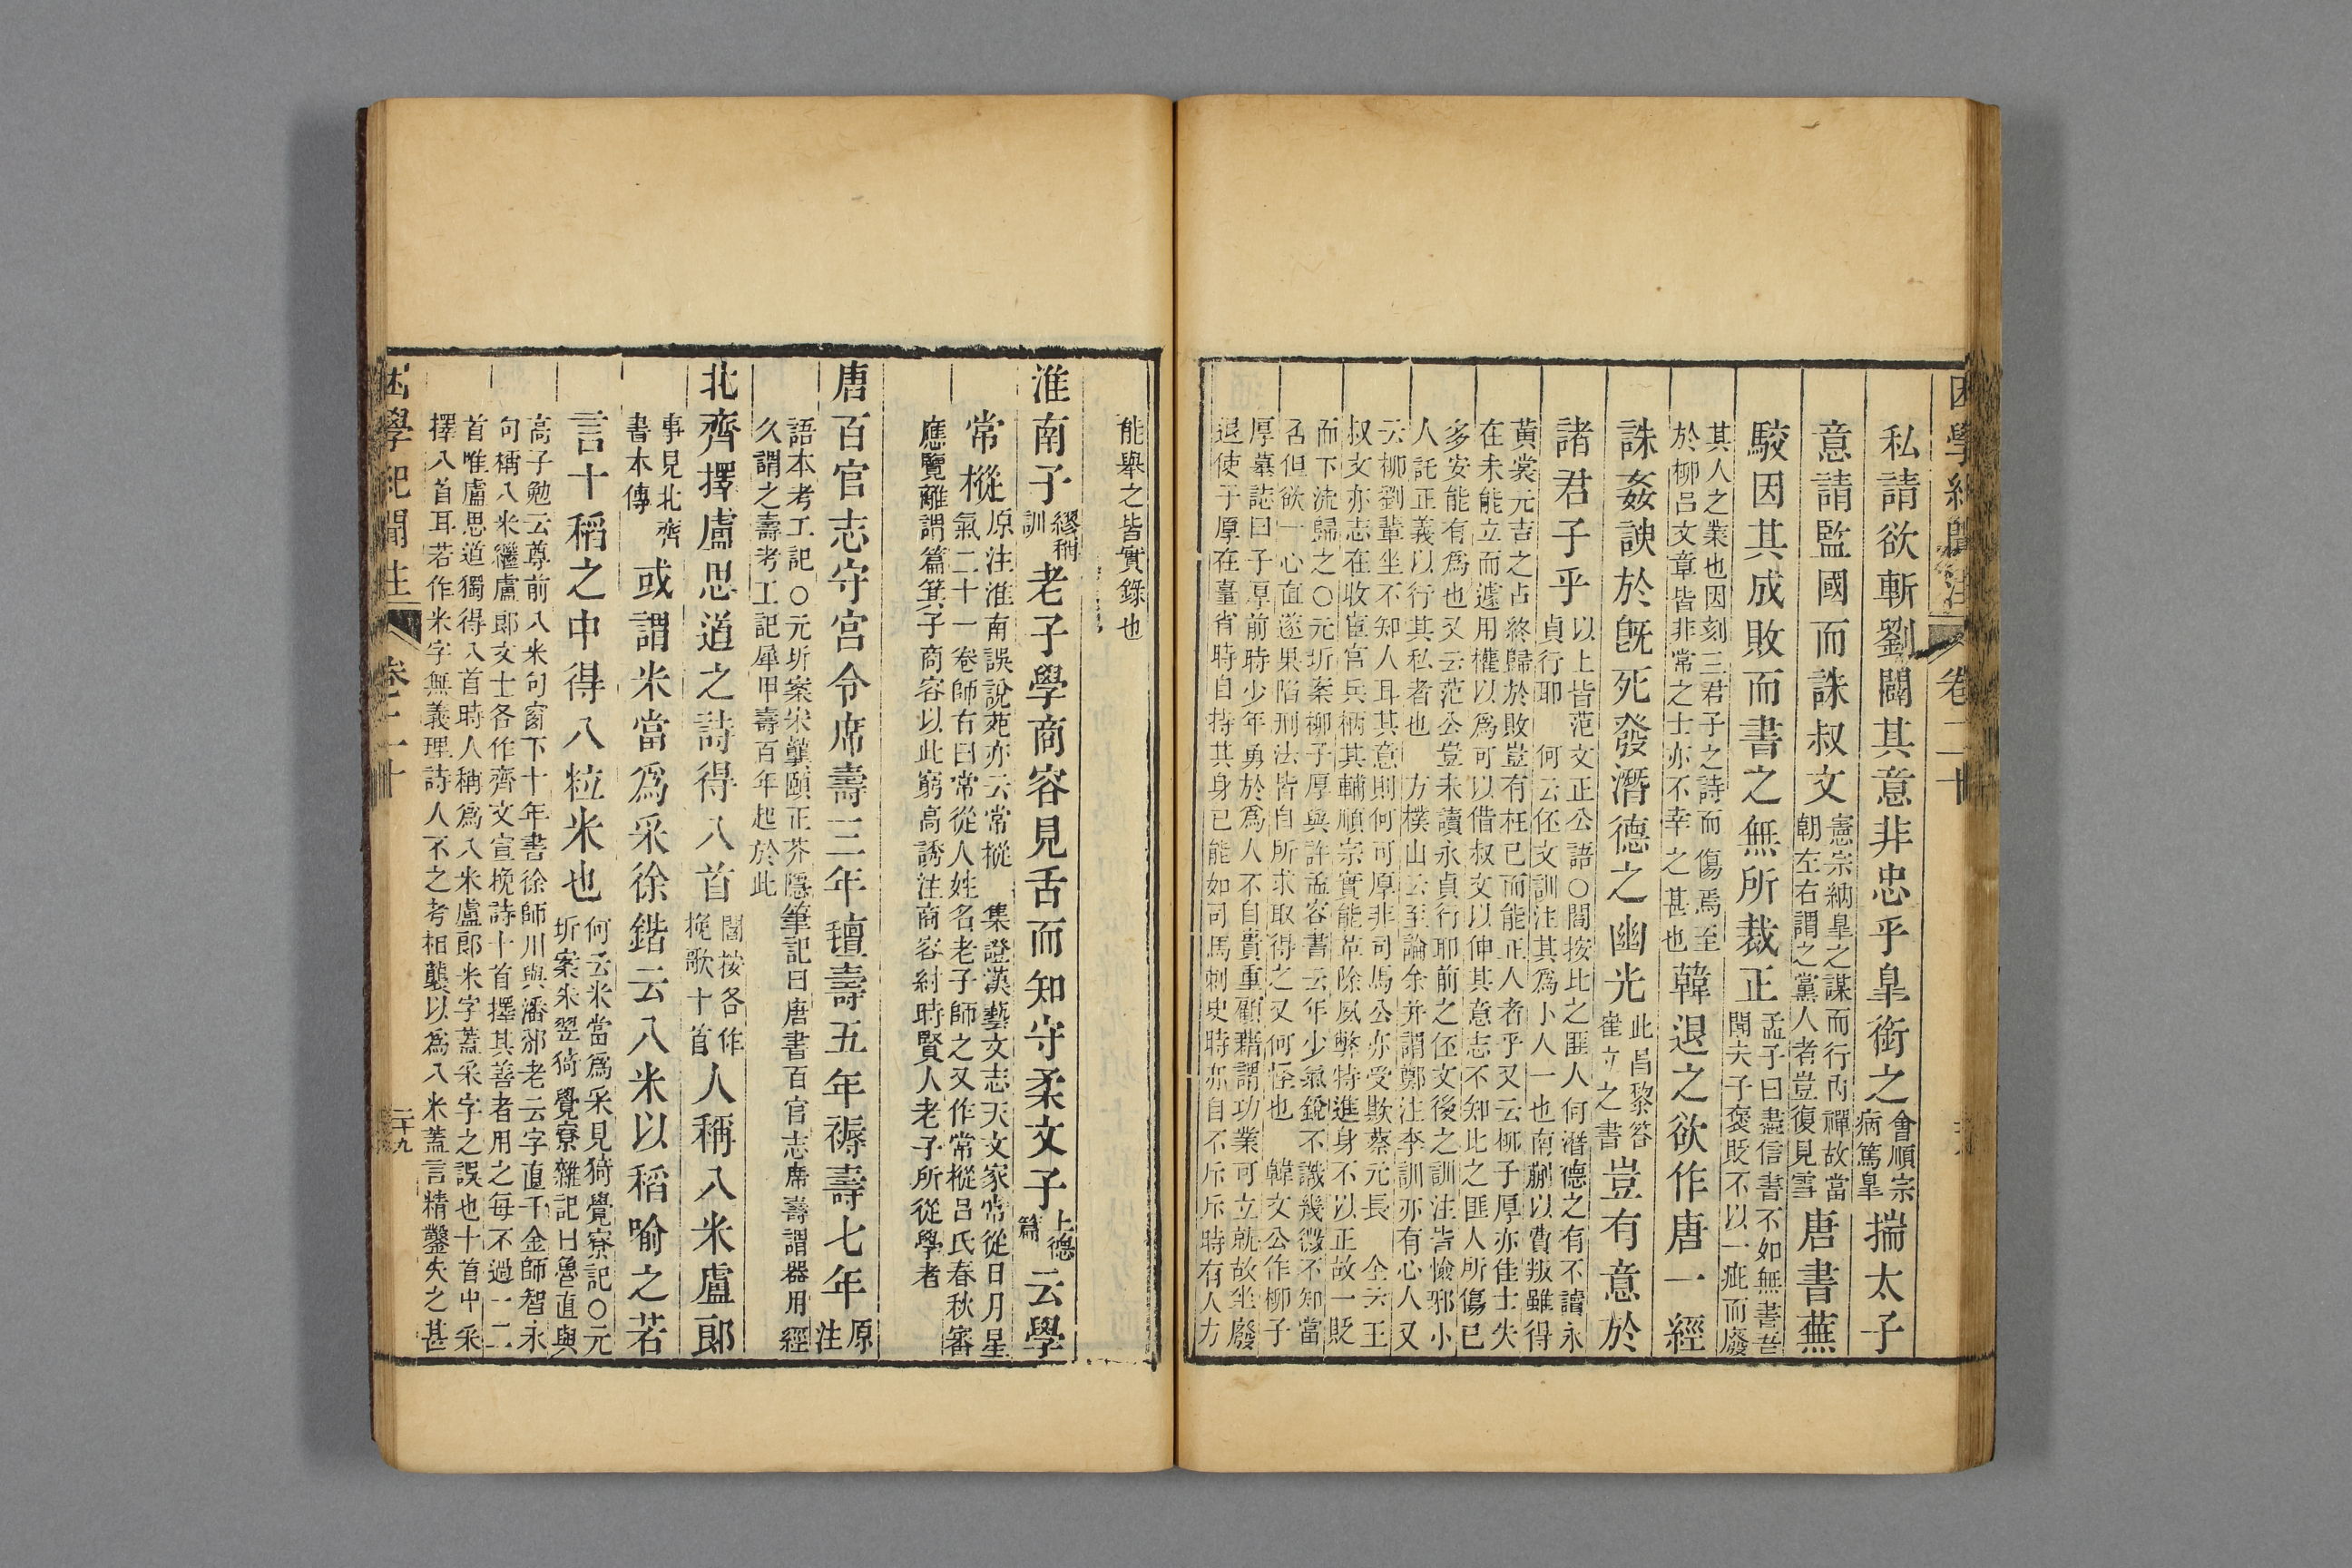 困學紀聞注 卷二十
私請欲斬劉闢其意非忠乎皐銜之會順宗病篤皐揣太子
意請監國而誅叔文憲宗納皐之謀而行內禪故當朝左右謂之黨人者豈復見雪唐書蕪
駮因其成敗而書之無所裁正孟子曰盡信書不如無書吾聞夫子褒貶不以一疵而廢
其人之業也因刻三君子之詩而傷焉至於柳呂文章皆非常之士亦不幸之甚也韓退之欲作唐一經
誅姦諛於旣死發潛德之幽光此昌黎答崔立之書豈有意於
諸君子乎以上皆范文正公語○閻按比之匪人何潛德之有不讀永貞行耶 何云伾文訓注其爲小人一也南蒯以費叛雖得
黃裳元吉之占終歸於敗豈有枉己而能正人者乎又云柳子厚亦佳士失
在未能立而遽用權以爲可以借叔文以伸其意志不知比之匪人所傷已
多安能有爲也又云范公豈未讀永貞行耶前之伾文後之訓注皆憸邪小
人託正義以行其私者也 方樸山云至論余幷謂鄭注李訓亦有心人又
云柳劉輩坐不知人耳其意則何可厚非司馬公亦受欺蔡元長 全云王
叔文亦志在收宦官兵柄其輔順宗實能革除夙弊特進身不以正故一貶
而下流歸之○元圻案柳子厚與許孟容書云年少氣銳不識幾微不知當
否但欲一心直遂果陷刑法皆自所求取得之又何怪也 韓文公作柳子
厚墓誌曰子厚前時少年勇於爲人不自貴重顧藉謂功業可立就故坐廢
退使子厚在臺省時自持其身已能如司馬刺史時亦自不斥斥時有人力
能舉之皆實錄也
淮南子繆稱訓老子學商容見舌而知守柔文子上德篇云學
常樅原注淮南誤說苑亦云常樅 集證漢藝文志天文家常從日月星
氣二十一卷師古曰常從人姓名老子師之又作常樅呂氏春秋審
應覽離謂篇箕子商容以此窮高誘注商容紂時賢人老子所從學者
唐百官志守宮令席壽三年氊壽五年褥壽七年原注
語本考工記○元圻案宋龔頤正芥隱筆記曰唐書百官志席壽謂器用經
久謂之壽考工記犀甲壽百年起於此
北齊擇盧思道之詩得八首閻按各作挽歌十首人稱八米盧郞
事見北齊書本傳或謂米當爲采徐鍇云八米以稻喻之若
言十稻之中得八粒米也何云米當爲采見猗覺寮記○元圻案朱翌猗覺寮雜記曰魯直與
高子勉云尊前八米句窗下十年書徐師川與潘邠老云字直千金師智永
句稱八米繼盧郞文士各作齊文宣挽詩十首擇其善者用之每不過一二
首唯盧思道獨得八首時人稱爲八米盧郞米字蓋采字之誤也十首中采
擇八首耳若作米字無義理詩人不之考相襲以爲八米蓋言精鑿失之甚
困學紀聞注 卷二十 二十九